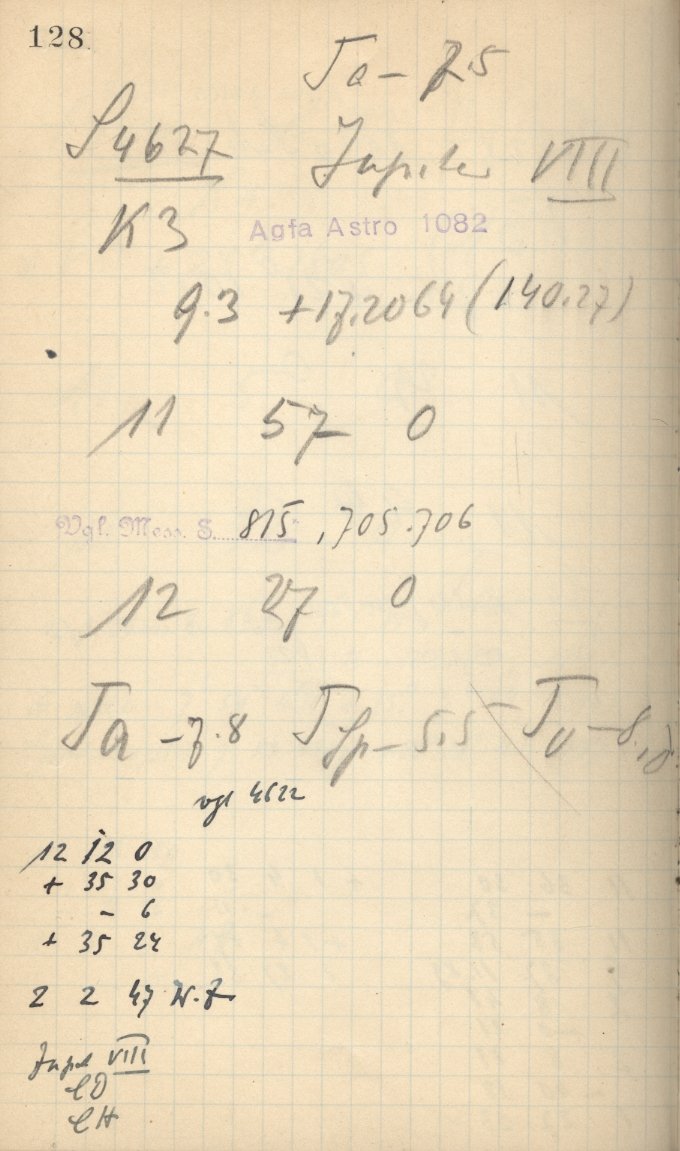 128
Ta - 7.5
S 4627 Jupiter VIII
K 3 Agfa Astro 1082
9.3 +17.2064 (140.27)
11 57 0
Vgl. Mess. S. 815, 705.706
12 27 0
Ta - 7.8 TSp - 5,5 Tv - 8,
vgl 4622
12 12 0
+ 35 30
- 6
+ 35 24
2 2 47 W.Z.
Jup VIII